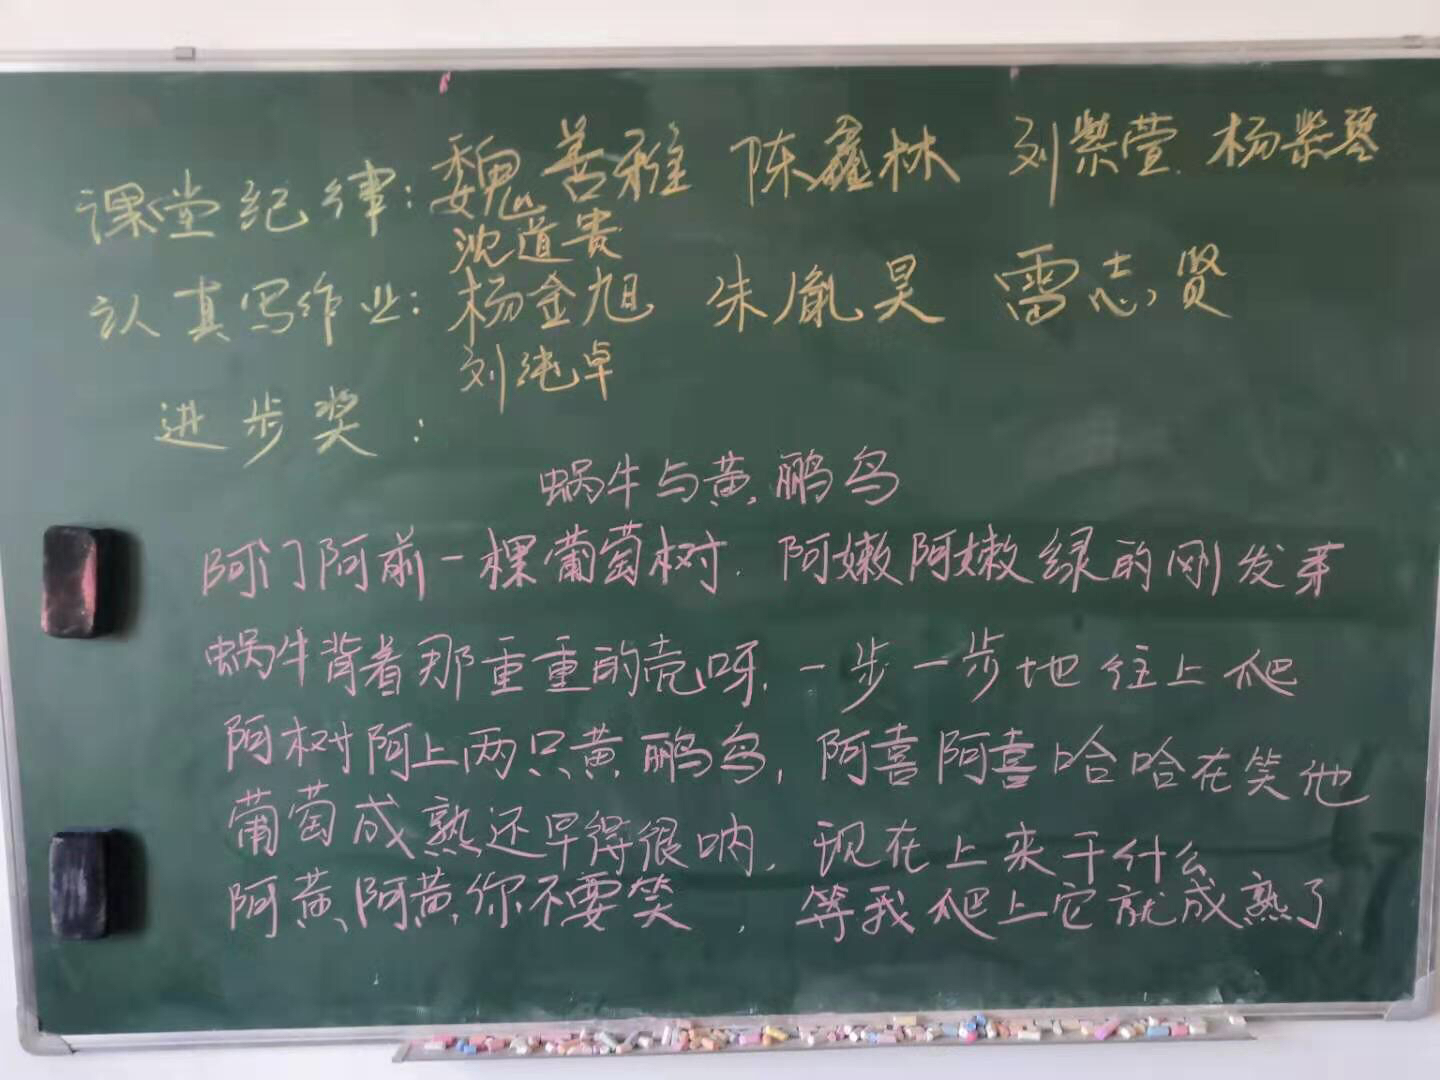 课堂纪律：魏善雅 陈鑫林 刘紫萱 杨紫琴
沈道贵
认真写作业：杨金旭 朱胤昊 雷志贤
刘纯卓
进步奖：
蜗牛与黄鹏鸟
阿门阿前一棵葡萄树. 阿嫩阿嫩绿的刚发芽
蜗牛背着那重重的壳呀, 一步一步地往上爬
阿树阿上两只黄鹏鸟, 阿喜阿喜哈哈在笑他
葡萄成熟还早得很呐, 现在上来干什么
阿黄阿黄你不要笑 , 等我爬上它就成熟了